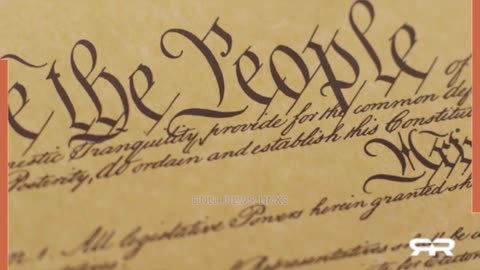 e the People of
estic Tranquility, provide for the common def
Posterity, do ordain and establish this Constitut
All legislative Powers herein granted sh
Representatives shall be c